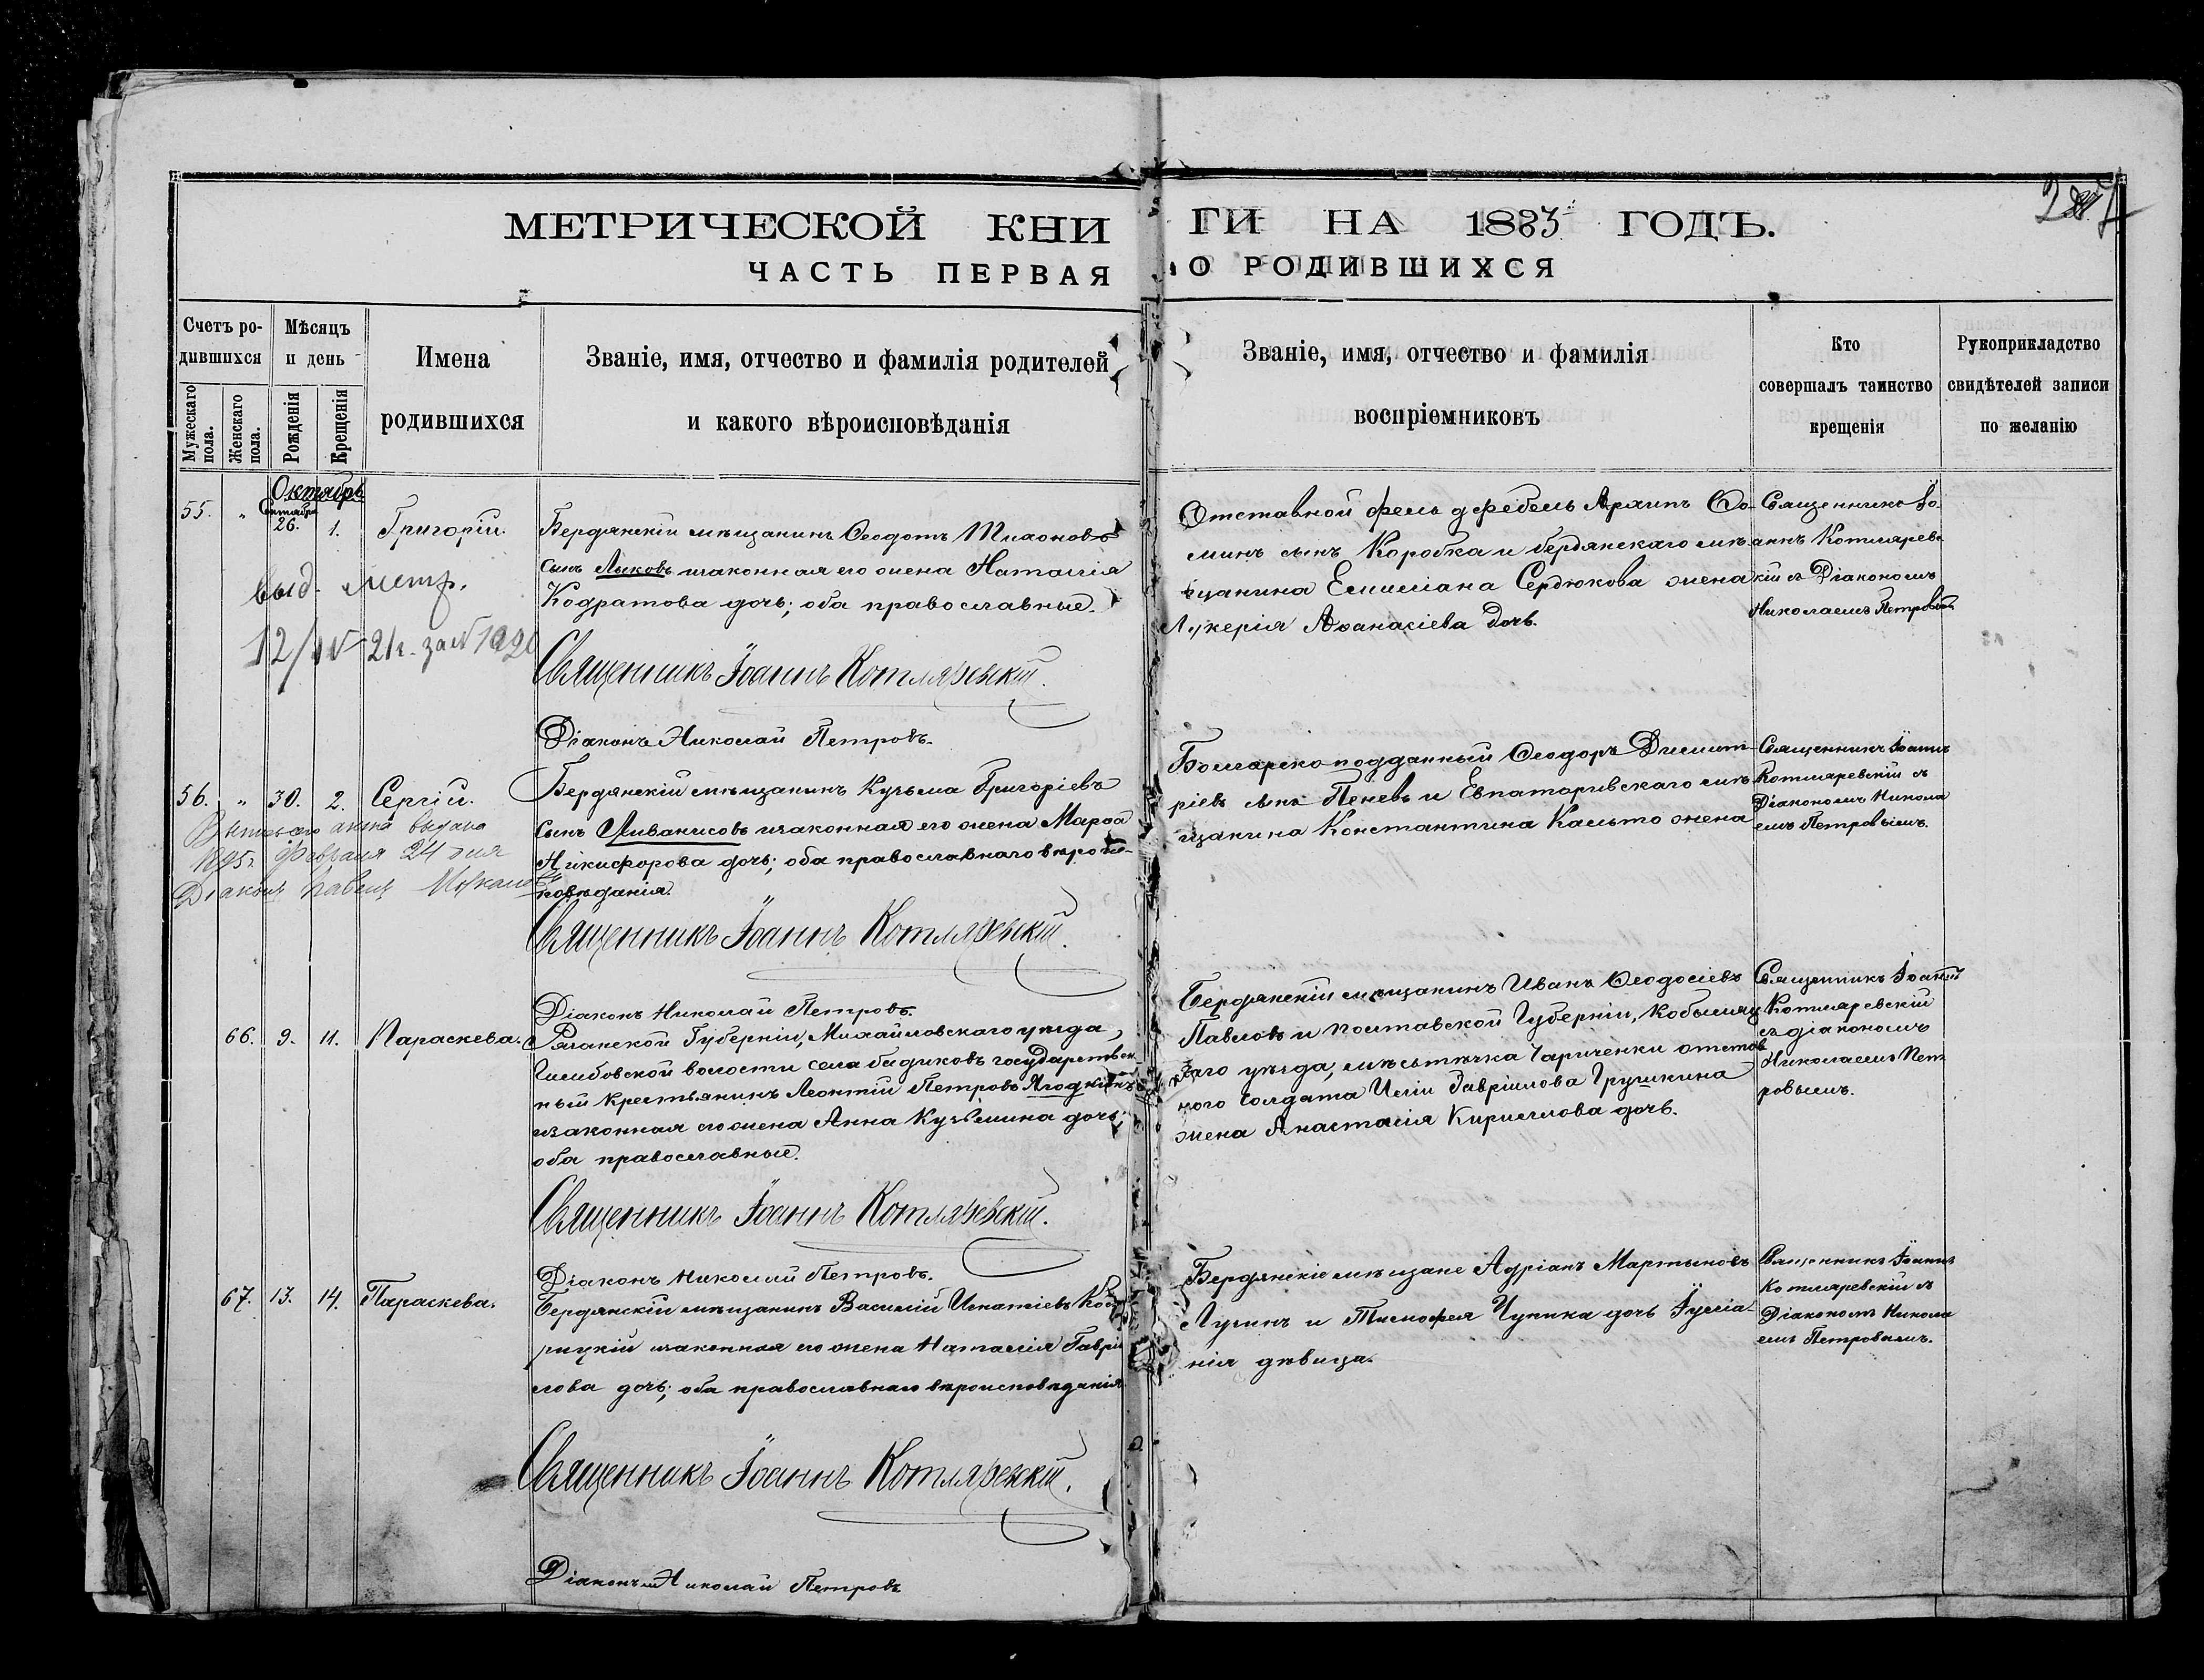 МЕТРИЧЕСКОЙ КНИГИ НА 1883 ГОДЪ.
ЧАСТЬ ПЕРВАЯ О РОДИВШИХСЯ
Счетъ родившихся
Мужескаго пола.
Женскаго пола.
Мѣсяцъ и день
Рожденія
Крещенія
Имена
родившихся
Званіе, имя, отчество и фамилія родителей
и какого вѣроисповѣданія
Званіе, имя, отчество и фамилія
воспріемниковъ
Кто
совершалъ таинство
крещенія
Рукоприкладство
свидѣтелей записи
по желанію
Октябрь
55. " 26. 1. Григорій.
Бердянскій мѣщанинъ Ѳеодотъ Тихоновъ
сынъ Лыковъ и законная его жена Наталія
Кодратова дочь; оба православные.
Священникъ Іоаннъ Котляревскій.
Діаконъ Николай Петровъ.
выд. метр.
Отставной фельдфебель Архипъ Ѳо-
минъ сынъ Коробка и бердянскаго мѣ-
щанина Емиліана Сердюкова жена
Лукерія Аѳанасіева дочь.
Священникъ Іо-
аннъ Котляревс-
кій съ Діакономъ
Николаемъ Петровымъ
56. " 30. 2. Сергій.
Бердянскій мѣщанинъ Кузьма Григоріевъ
сынъ Ливанисовъ и законная его жена Марѳа
Никифорова дочь; оба православнаго вѣроис-
повѣданія.
Священникъ Іоаннъ Котляревскій.
Діаконъ Николай Петровъ.
выдана
февраля 24 дня
Діаконъ Павелъ
Болгарско-подданный Ѳеодоръ Димит-
ріевъ сынъ Пеневъ и Евпаторивскаго мѣ-
щанина Константина Кальто жена
Священникъ Іоаннъ
Котляревскій съ
Діакономъ Никола
емъ Петровымъ.
66. 9. 11. Параскева.
Рязанской Губерніи, Михайловскаго уѣзда,
волости села государствен-
ный крестьянинъ Леонтій Петровъ Ягодкинъ
и законная его жена Анна Кузьмина дочь;
оба православные.
Священникъ Іоаннъ Котляревскій.
Діаконъ Николай Петровъ.
Бердянскій мѣщанинъ Иванъ Ѳеодосіевъ
Павловъ и Полтавской Губерніи, Кобыляц-
каго уѣзда, мѣстечка Чариченки отстав
ного солдата Иліи Гавріилова Грушкина
жена Анастасія Кириллова дочь.
Священникъ Іоаннъ
Котляревскій
съ діакономъ
Николаемъ Пет
ровымъ.
67. 13. 14. Параскева.
Бердянскій мѣщанинъ Василій Игнатіевъ
рицкій и законная его жена Наталія Гаврі
лова дочь; оба православнаго вѣроисповѣданія
Священникъ Іоаннъ Котляревскій.
Діаконъ Николай Петровъ
Бердянскіе мѣщане Адріанъ Мартыновъ
Лугинъ и Тимоѳея Чупика дочь Іуліа-
нія дѣвица.
Священникъ Іоаннъ
Котляревскій съ
Діакономъ Никола
емъ Петровымъ.